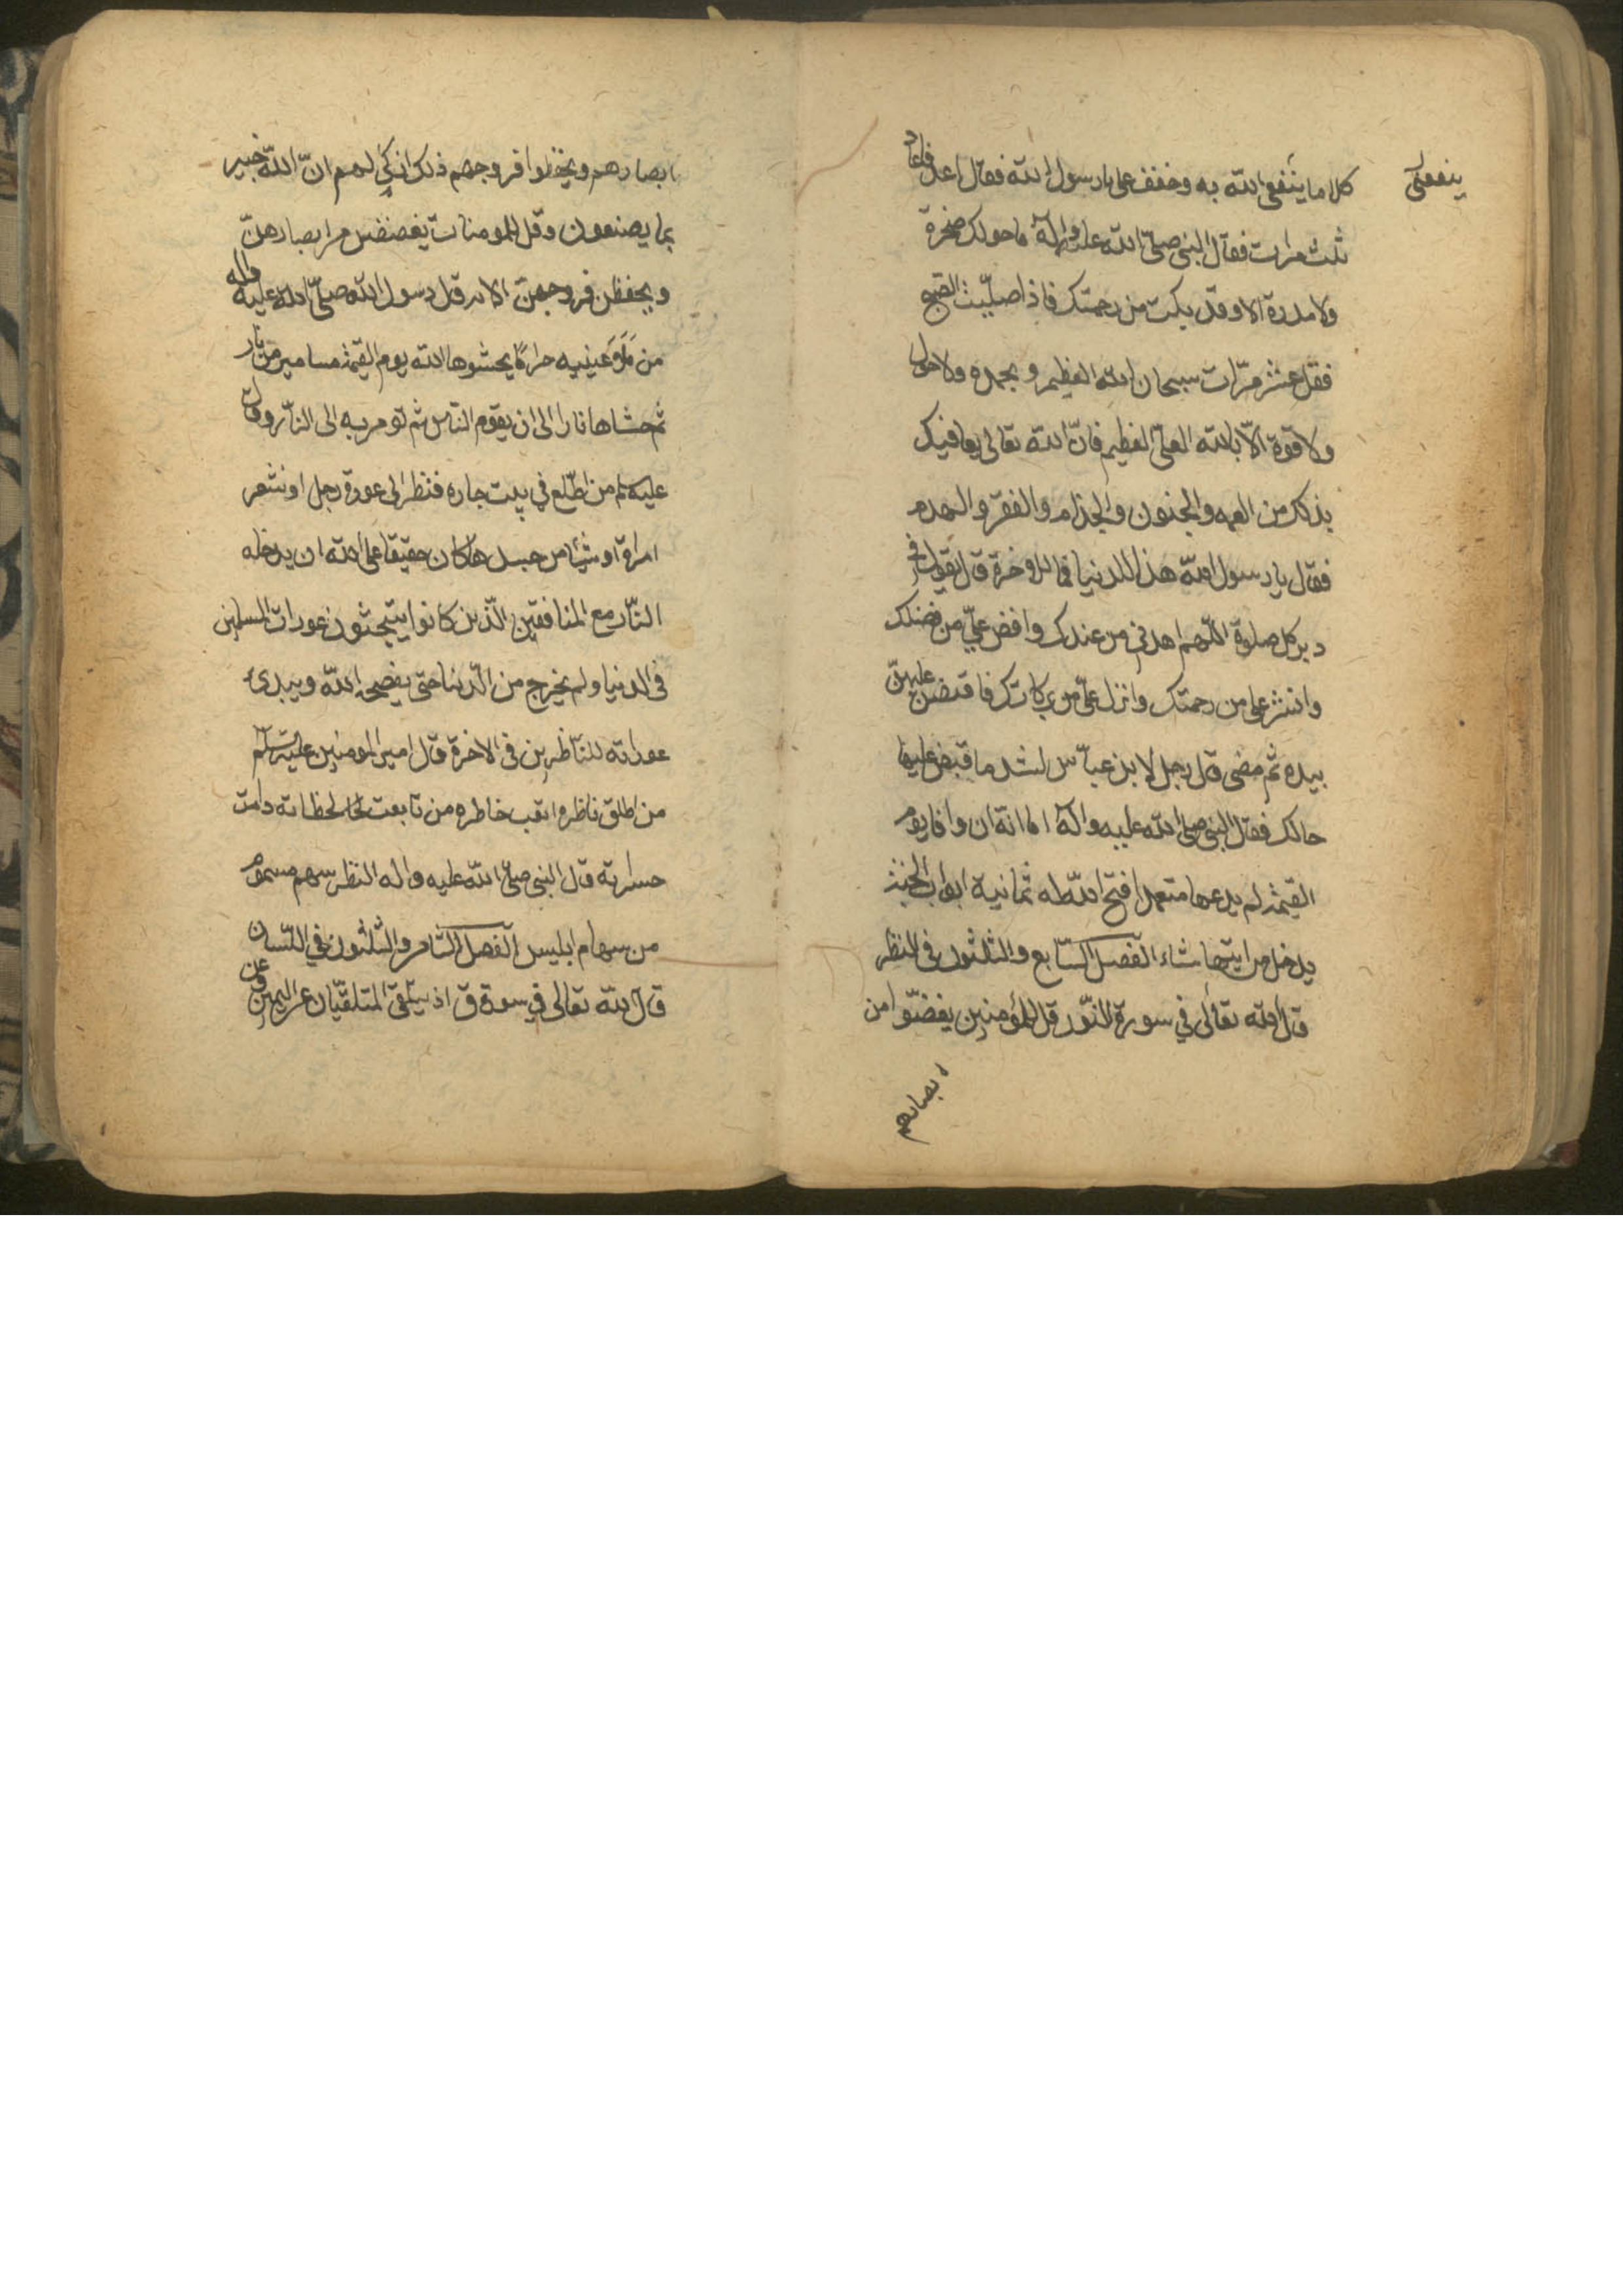 ينفعنى
كلاما ينفعنى الله به وخفف على يا رسول الله فقال اعد فاعاد
ثلث مرات فقال النبى صلى الله عليه واله ما حولك صخرة
ولا مدرة الا وقد بكت من رحمتك فاذا صليت الصبح
فقل عشر مرّات سبحان الله العظيم وبحمده ولا حول
ولا قوة الّا بالله العلىّ العظيم فانّ الله تعالى يعافيك
بذلك من العمه والجنون والجذام والفقر والهدم
فقال يا رسول الله هذا للدنيا فما للاخرة قال تقول فى
دبر كل صلوة اللّهم اهدنى من عندك وافض علىّ من فضلك
وانشر على من رحمتك وانزل علىّ من بركاتك فاقتبض عليهنّ
بيده ثم مضى قال رجل لابن عبّاس لشد ما قبض عليها
خالك فقال النبى صلى الله عليه واله اما انه ان وافا يوم
القيمة لم يدعها متعمدا فتح الله له ثمانية ابواب الجنة
يدخل من ايتها شاء الفصل السّابع والثلثون فى النظر
قال الله تعالى في سورة النّور قل للمؤمنين يغضّوا من
ابصارهم
ابصارهم ويحفظوا فروجهم ذلك ازكى لهم انّ اللّه خبير
بما يصنعون وقل للمومنات يغضضن من ابصارهنّ
ويحفظن فروجهنّ الايه قال رسول اللّه صلّى الله عليه واله
من ملأ عينيه حراماً يحشوها الله يوم القيمة مسامير من نار
ثم حشاها نارا الى ان يقوم النّاس ثم تومر به الى النّار وقال
عليه‌لم من اطّلع في بيت جاره فنظر الى عورة رجل او شعر
امراة او شيئا من جسدها كان حقيقا على الله ان يدخله
النّار مع المنافقين الّذين كانوا يتبحثون عورات المسلمين
فى الدنيا ولم يخرج من الدّنيا حتى يفضحه اللّه ويبدى
عوراته للنّاظرين فى الاخرة قال امير المومنين عليه السلم
من اطلق ناظره اتعب خاطره من تابعت لحظاته دامت
حسراته قال النبى صلى اللّه عليه واله النظر سهم مسموم
من سهام ابليس الفصل الثّامن والثلثون في اللّسان
قال الله تعالى في سورة ق اذ يتلقى المتلقّيان عن اليمين وعن